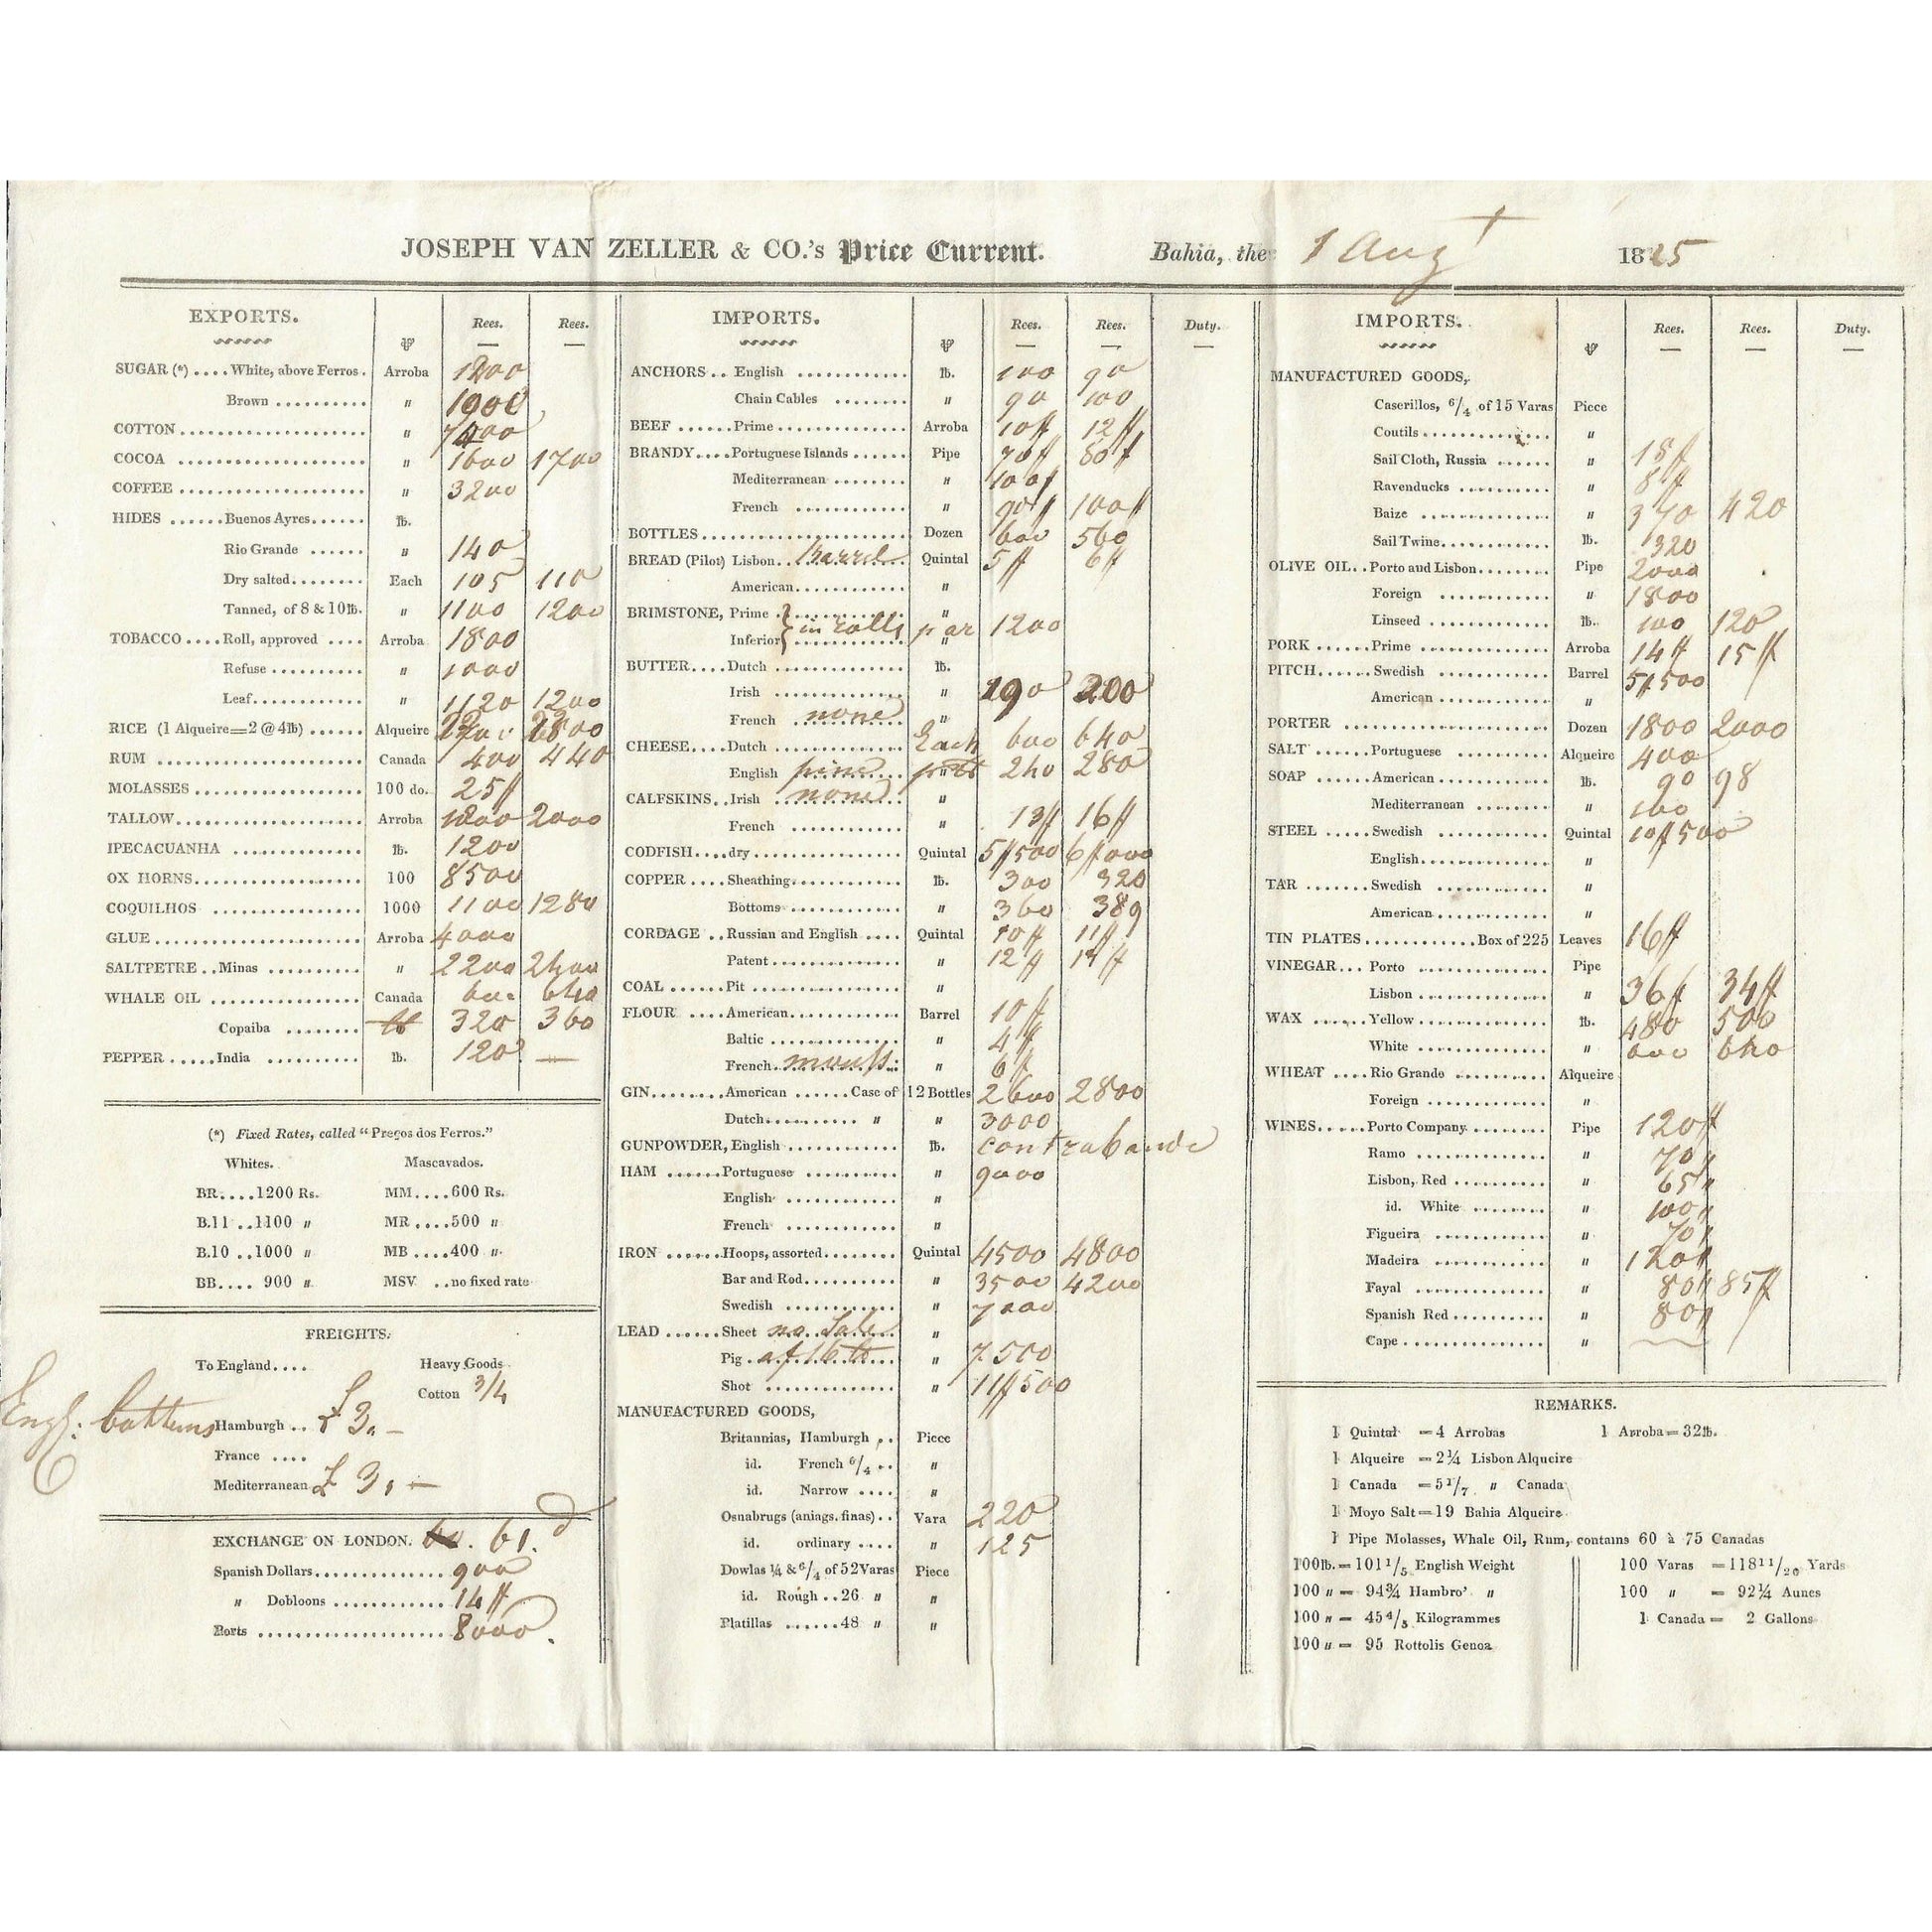 JOSEPH VAN ZELLER & CO.'s Price Current. Bahia, the 1 Augt 1825
EXPORTS. Rees. Rees.
SUGAR (*) .... White, above Ferros. Arroba 1200
Brown .......... " 1900
COTTON .................... "
COCOA .................... " 1600 1700
COFFEE .................... " 3200
HIDES ...... Buenos Ayres...... lb.
Rio Grande ...... " 140
Dry salted........ Each 105 110
Tanned, of 8 & 10 lb. " 1100 1200
TOBACCO .... Roll, approved .... Arroba 1800
Refuse .......... " 1000
Leaf............ " 1120 1200
RICE (1 Alqueire=2 @ 4lb) ...... Alqueire
RUM .................... Canada 400 440
MOLASSES .................. 100 do. 25ff
TALLOW .................... Arroba 1800 2000
IPECACUANHA .............. lb. 1200
OX HORNS .................. 100 8500
COQUILHOS ................ 1000 1100 1280
GLUE ...................... Arroba 4000
SALTPETRE .. Minas .......... " 2200 2400
WHALE OIL ................ Canada 600 640
Copaiba ........ lb 320 360
PEPPER ..... India .......... lb. 120 —
(*) Fixed Rates, called "Preços dos Ferros."
Whites. Mascavados.
BR.... 1200 Rs. MM.... 600 Rs.
B.11 .. 1100 " MR .... 500 "
B.10 .. 1000 " MB .... 400 "
BB.... 900 " MSV .. no fixed rate
FREIGHTS.
To England .... Heavy Goods
Cotton 3/4
Engl: bottums Hamburgh .. £ 3. –
France ....
Mediterranean £ 3, –
EXCHANGE ON LONDON. 60. 61. d
Spanish Dollars.............. 900
" Dobloons ............ 14ff
Ports .................... 8000.
IMPORTS. Rees. Rees. Duty.
ANCHORS .. English ............ lb. 100 90
Chain Cables ........ " 90 100
BEEF ...... Prime .............. Arroba 10ff 12ff
BRANDY.... Portuguese Islands ...... Pipe 70ff 80ff
Mediterranean ........ " 100ff
French ............ " 90ff 100ff
BOTTLES .................... Dozen 600 560
BREAD (Pilot) Lisbon.. Barrel Quintal 5ff 6ff
American............ "
BRIMSTONE, Prime } ............ "
Inferior } in rolls par " 1200
BUTTER.... Dutch .............. lb.
Irish .............. " 190 200
French none "
CHEESE.... Dutch .............. Each 600 640
English pine " 240 280
CALFSKINS.. Irish none "
French ............ " 13ff 16ff
CODFISH.... dry................ Quintal 5ff500 6ff000
COPPER .... Sheathing............ lb. 300 320
Bottoms ............ " 360 380
CORDAGE .. Russian and English .... Quintal 10ff 11ff
Patent .............. " 12ff 14ff
COAL ...... Pit ................ "
FLOUR .... American............ Barrel 10ff
Baltic .............. " 4ff
French " 6ff
GIN........ American ...... Case of 12 Bottles 2600 2800
Dutch.......... " " 3000
GUNPOWDER, English ............ lb. contrabande
HAM ...... Portuguese .......... " 9000
English ............ "
French ............ "
IRON ...... Hoops, assorted........ Quintal 4500 4800
Bar and Rod.......... " 3500 4200
Swedish ............ " 7000
LEAD ...... Sheet no Sale "
Pig " 7500
Shot .............. " 11ff500
MANUFACTURED GOODS,
Britannias, Hamburgh .. Piece
id. French 6/4 .. "
id. Narrow .... "
Osnabrugs (aniags. finas) .. Vara 220
id. ordinary .... " 125
Dowlas ¼ & 6/4 of 52 Varas Piece
id. Rough .. 26 " "
Platillas ...... 48 " "
IMPORTS. Rees. Rees. Duty.
MANUFACTURED GOODS,
Caserillos, 6/4 of 15 Varas Piece
Coutils .............. "
Sail Cloth, Russia ...... " 18ff
Ravenducks .......... " 8ff
Baize .............. " 370 420
Sail Twine............ lb. 320
OLIVE OIL.. Porto and Lisbon........ Pipe 2000
Foreign ............ " 1800
Linseed ............ lb. 100 120
PORK ...... Prime .............. Arroba 14ff 15ff
PITCH...... Swedish ............ Barrel 5ff500
American ............ "
PORTER .................... Dozen 1800 2000
SALT ...... Portuguese .......... Alqueire 400
SOAP ...... American ............ lb. 90 98
Mediterranean ........ " 100
STEEL ..... Swedish ............ Quintal 10ff500
English............ "
TAR ....... Swedish ............ "
American............ "
TIN PLATES ............ Box of 225 Leaves 16ff
VINEGAR... Porto .............. Pipe
Lisbon .............. " 36ff 34ff
WAX ...... Yellow .............. lb. 480 500
White .............. " 600 640
WHEAT .... Rio Grande .......... Alqueire
Foreign ............ "
WINES..... Porto Company ......... Pipe 120ff
Ramo .............. " 70 "
Lisbon, Red .......... " 65 "
id. White ........ " 100 "
Figueira ............ " 70 "
Madeira ............ " 120ff
Fayal .............. " 80ff 85ff
Spanish Red .......... " 80 "
Cape .............. "
REMARKS.
1 Quintal = 4 Arrobas 1 Arroba = 32lb.
1 Alqueire = 2¼ Lisbon Alqueire
1 Canada = 5 1/7 " Canada
1 Moyo Salt = 19 Bahia Alqueire
1 Pipe Molasses, Whale Oil, Rum, contains 60 à 75 Canadas
100lb. = 101 1/5 English Weight 100 Varas = 118 11/20 Yards
100 " = 94¾ Hambro' " 100 " = 92¼ Aunes
100 " = 45 4/5 Kilogrammes 1 Canada = 2 Gallons
100 " = 95 Rottolis Genoa